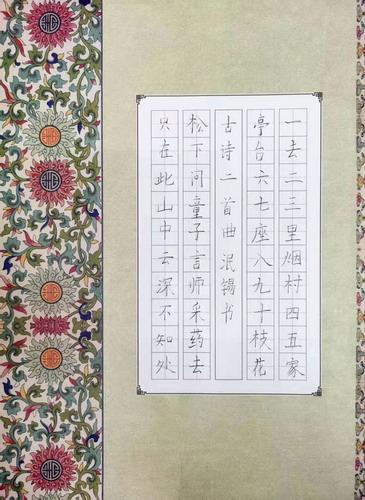 一去二三里烟村四五家
亭台六七座八九十枝花
古诗二首曲泯锡书
松下问童子言师采药去
只在此山中云深不知处